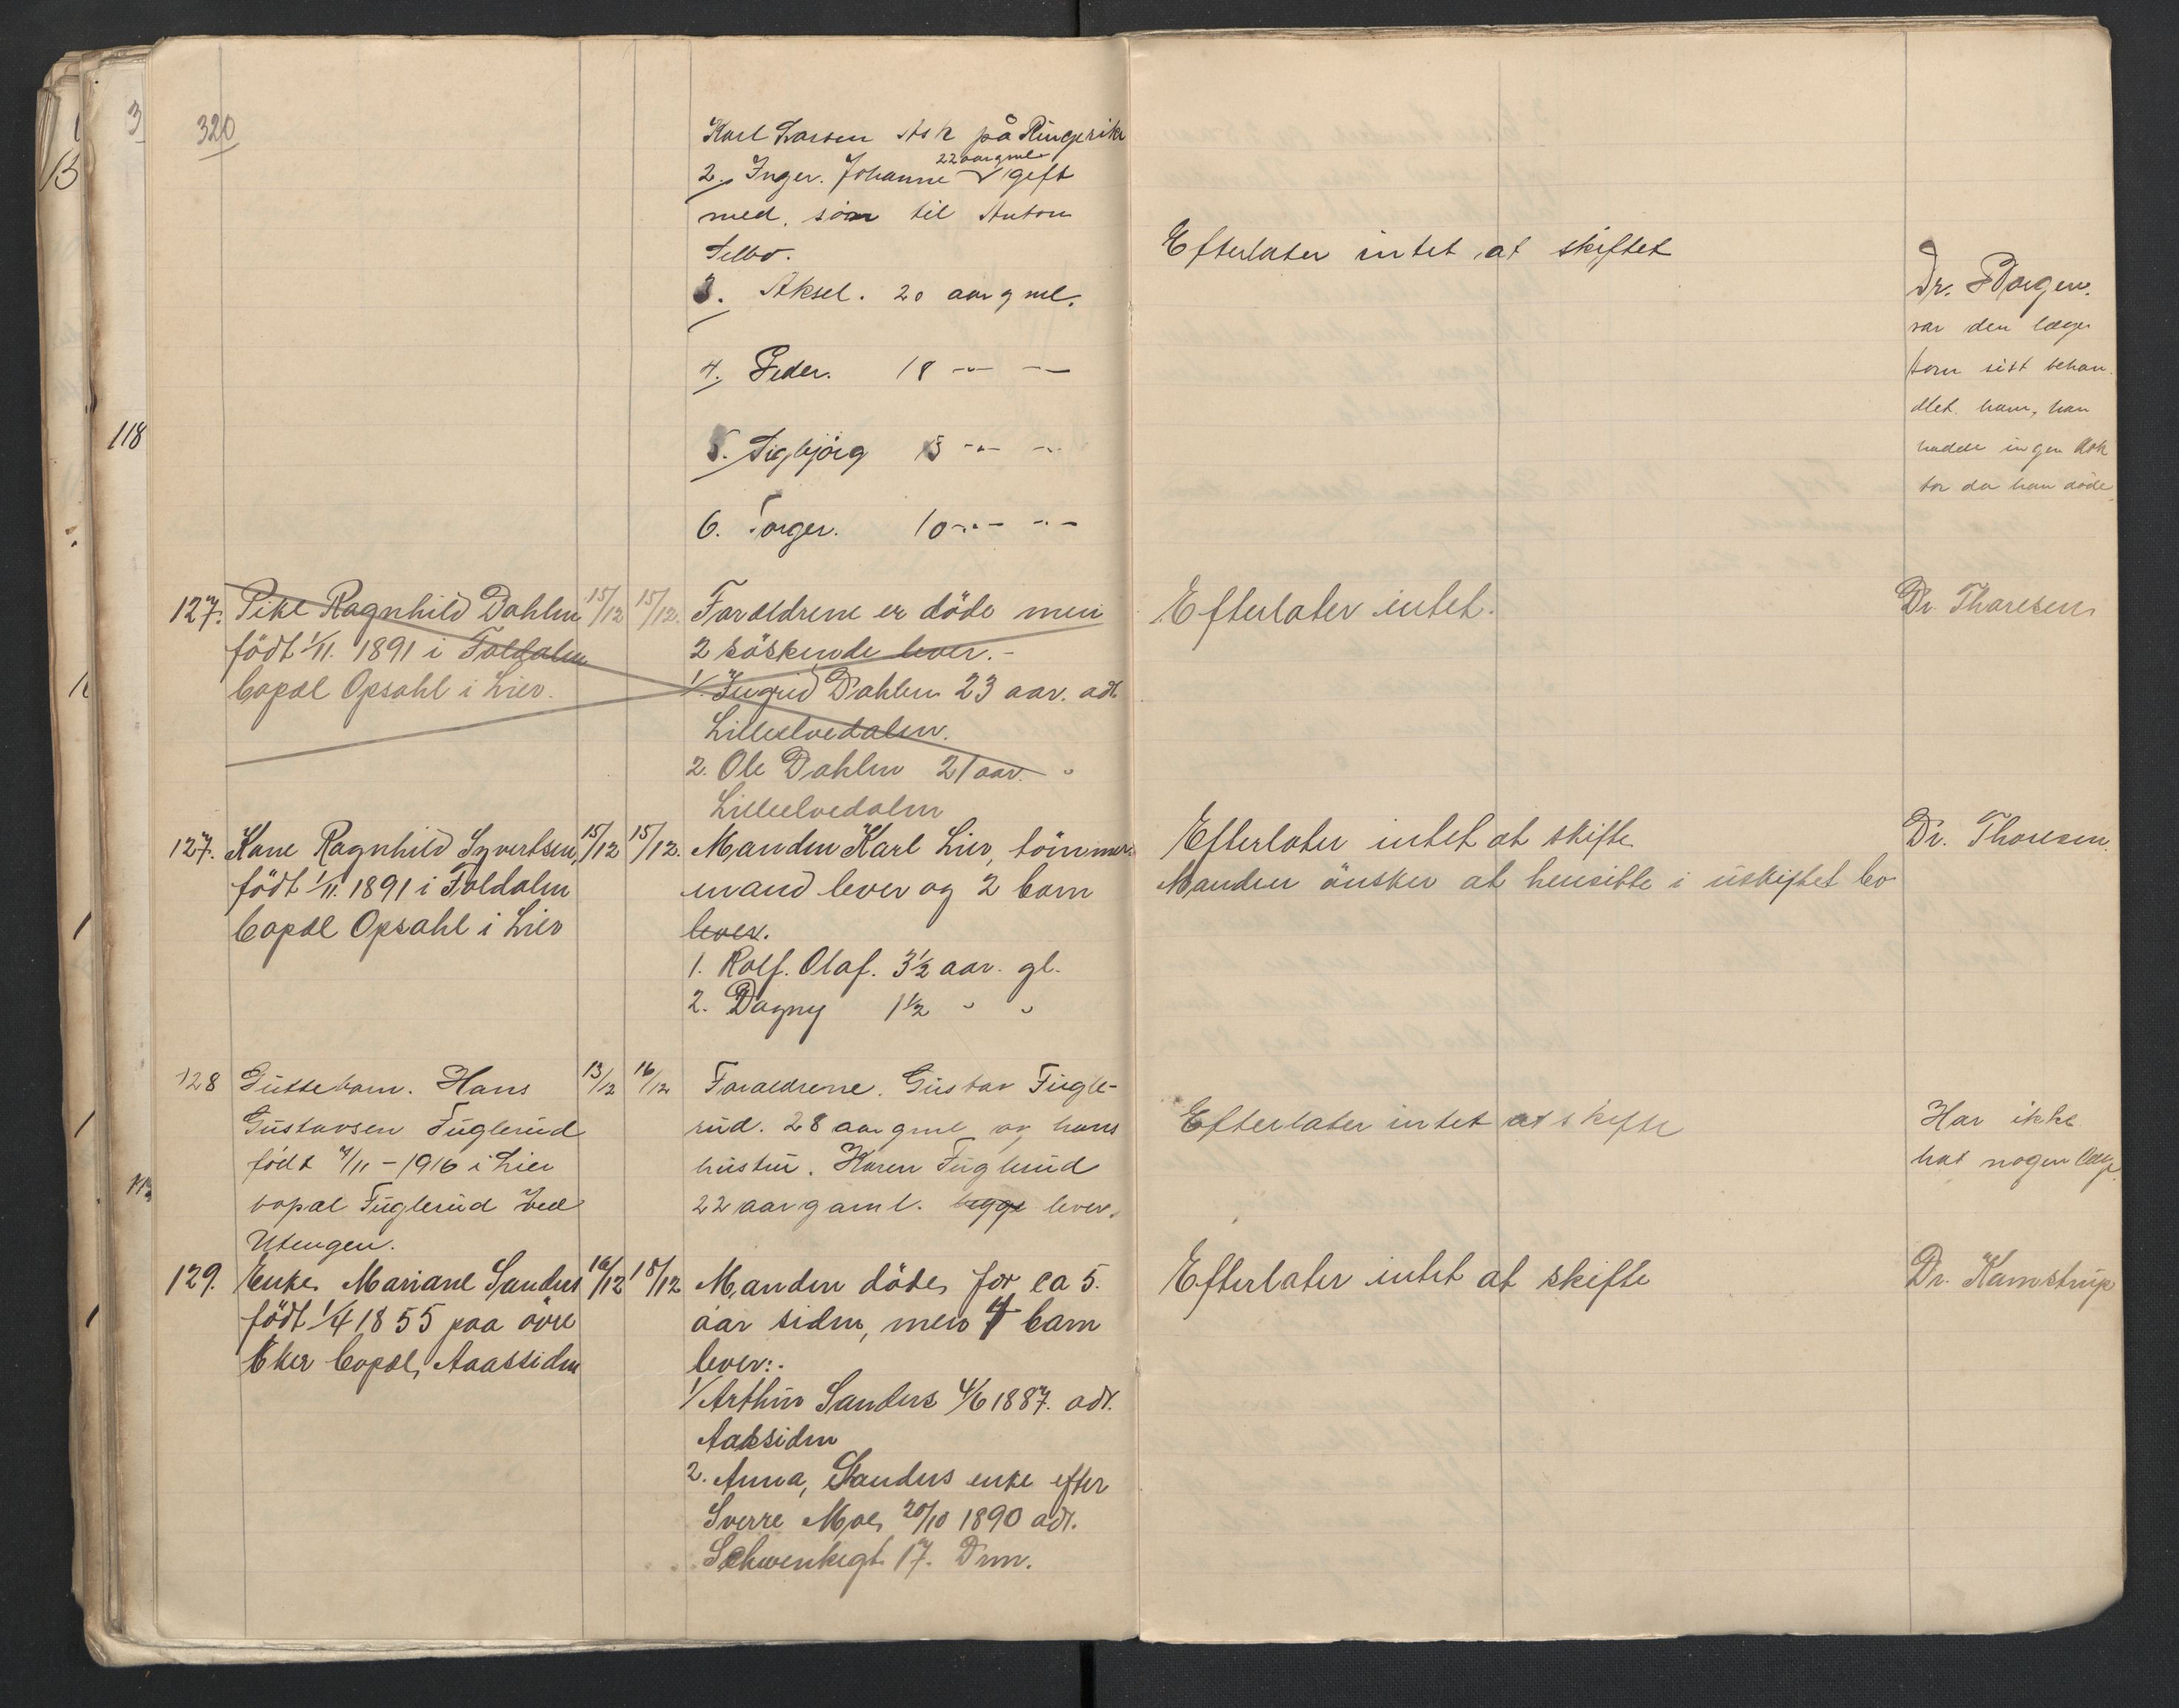 320
Karl Larsen Ask på Ringerike
2. Inger. Johanne 22 aar gml. gift
med. sön til Anton
Selbo.
3. Aksel. 20 aar g ml.
4. Peder. 18 -"- -
5. Sigbjörg 15 -"- -"-
6. Torger. 10 -"- -"-
Efterlater intet at skiftet
Dr.
var den læge
som sist behan-
dlet ham, han
hadde ingen dok
tor da han döde.
118
127. Pike Ragnhild Dahlen 15/12 15/12. Foreldrene er döde men
født 1/11. 1891 i Foldalen 2 söskende lever.-
bopæl Opsahl i Lier. 1/. Ingrid Dahlen 23 aar. adr.
Lilleelvedalen.
2. Ole Dahlen 21 aar. "
Lilleelvedalen
Efterlater intet.
Dr. Thoresen
127. Kone Ragnhild Syvertsen, 15/12 15/12. Manden Karl Lier, tömmer-
født 1/11. 1891 i Foldalen mand lever og 2 barn
bopæl Opsahl i Lier lever.
1. Rolf. Olaf. 3½ aar. gl.
2. Dagny 1½ " "
Efterlater intet at skifte
Manden önsker at hensitte i uskiftet bo
Dr. Thoresen.
128 Guttebarn. Hans 13/12 16/12 Foraeldrene. Gustav Fugle-
Gustavsen Fuglerud rud. 28 aar gml og hans
født 7/11 - 1916 i Lier hustru. Karen Fuglerud
bopæl Fuglerud ved 22 aar gaml. begge lever.
Utengen.
Efterlater intet at skifte
Har ikke
hat nogen læge
129. Enke Mariane Sanders 16/12 18/12 Manden döde for ca 5.
født 1/4 1855 paa övre aar siden, men 4 barn
Eker bopæl, Aassiden lever:.
1/ Arthur Sanders 4/6 1887. adr.
Aassiden
2. Anna, Sanders enke efter
Sverre Moe, 20/10 1890 adr.
Schwenkegt. 17. Drm.
Efterlater intet at skifte
Dr. Kamstrup